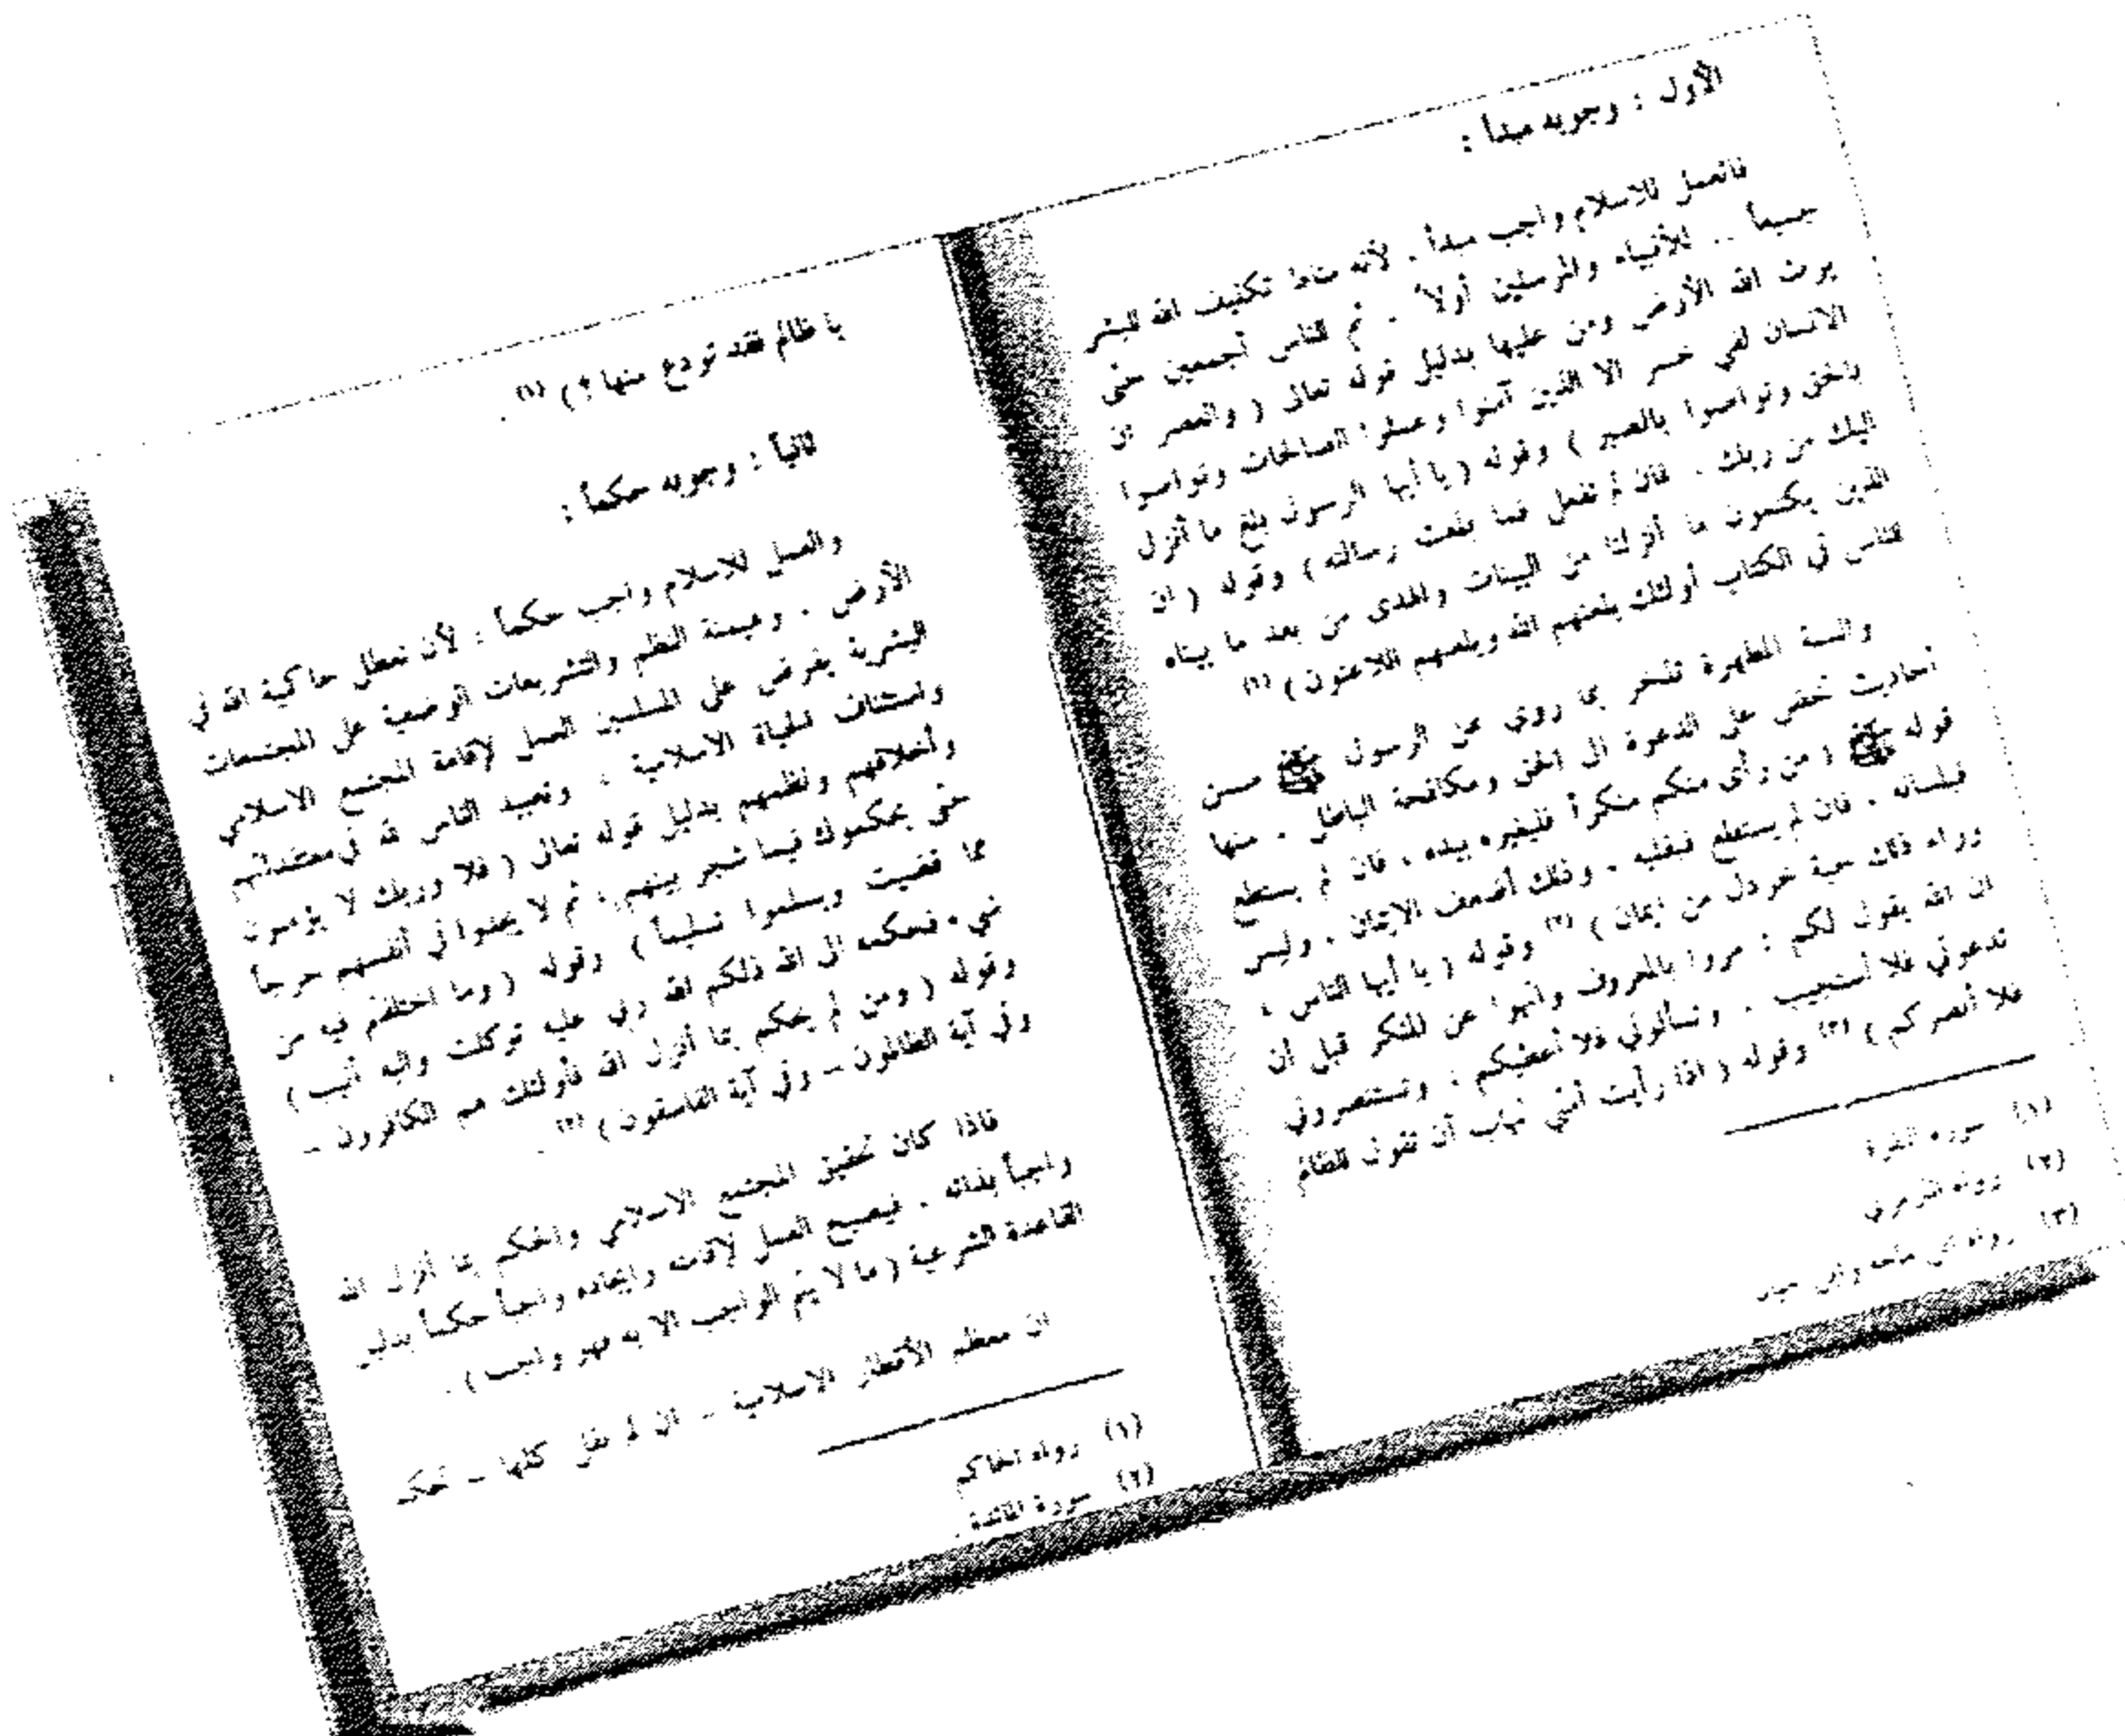 الأول : وجوبه مبدأ :
فالعمل للاسلام واجب مبدأ ، لأنه مناط تكليف الله للبشر
جميعاً .. للأنبياء والمرسلين أولاً .. ثم للناس أجمعين حتى
يرث الله الأرض ومن عليها بدليل قوله تعالى ( والعصر ان
الانسان لفي خسر الا الذين آمنوا وعملوا الصالحات وتواصوا
بالحق وتواصوا بالصبر ) وقوله ( يا أيها الرسول بلغ ما أنزل
اليك من ربك ، فان لم تفعل فما بلغت رسالته ) وقوله ( ان
الذين يكتمون ما أنزلنا من البينات والهدى من بعد ما بيناه
للناس في الكتاب أولئك يلعنهم الله ويلعنهم اللاعنون ) (١)
والسنة المطهرة تفخر بما روي عن الرسول ﷺ من
أحاديث تحض على الدعوة الى الحق ومكافحة الباطل ، منها
قوله ﷺ ( من رأى منكم منكراً فليغيره بيده ، فان لم يستطع
فبلسانه ، فان لم يستطع فبقلبه ، وذلك أضعف الايمان ، وليس
وراء ذلك حبة خردل من ايمان ) (٢) وقوله ( يا أيها الناس ،
ان الله يقول لكم : مروا بالمعروف وانهوا عن المنكر قبل أن
تدعوني فلا أستجيب ، وتسألوني فلا أعطيكم ، وتستنصروني
فلا أنصركم ) (٣) وقوله ( اذا رأيت أمتي تهاب أن تقول للظالم
(١) سورة البقرة
(٢) رواه الترمذي
(٣) رواه ابن ماجه وابن حبان
يا ظالم فقد تودع منها ؟ ) (١) .
ثانياً : وجوبه حكماً :
والعمل للاسلام واجب حكماً ، لأن تعطل حاكمية الله في
الأرض ، وهيمنة النظم والتشريعات الوضعية على المجتمعات
البشرية يفرض على المسلمين العمل لاقامة المجتمع الاسلامي
واستئناف الحياة الاسلامية ، وتعبيد الناس لله في معتقداتهم
وأخلاقهم ونظمهم بدليل قوله تعالى ( فلا وربك لا يؤمنون
حتى يحكموك فيما شجر بينهم ، ثم لا يجدوا في أنفسهم حرجاً
مما قضيت ويسلموا تسليماً ) وقوله ( وما اختلفتم فيه من
شيء فحكمه الى الله ذلكم الله ربي عليه توكلت واليه أنيب )
وقوله ( ومن لم يحكم بما أنزل الله فأولئك هم الكافرون –
وفي آية الظالمون – وفي آية الفاسقون ) (٢) .
فاذا كان تحقيق المجتمع الاسلامي والحكم بما أنزل الله
واجباً بذاته ، فيصبح العمل لاقامته وايجاده واجباً حكماً بدليل
القاعدة الشرعية ( ما لا يتم الواجب الا به فهو واجب ) .
ان معظم الأقطار الاسلامية – ان لم نقل كلها – تحكم
(١) رواه الحاكم
(٢) سورة المائدة .